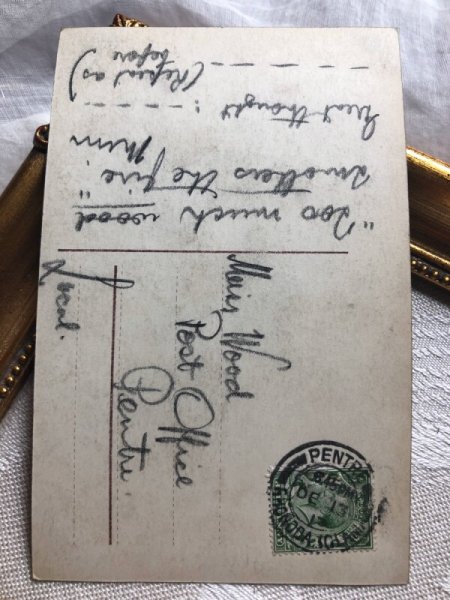 "Too much wood
smothers the fire."
Hum
Next thought : - - -
- - - - - - (Repeat as
before)
Miss Wood
Post Office
Pentre.
Local.
PENTRE
DE 13
RHONDDA (GLAM